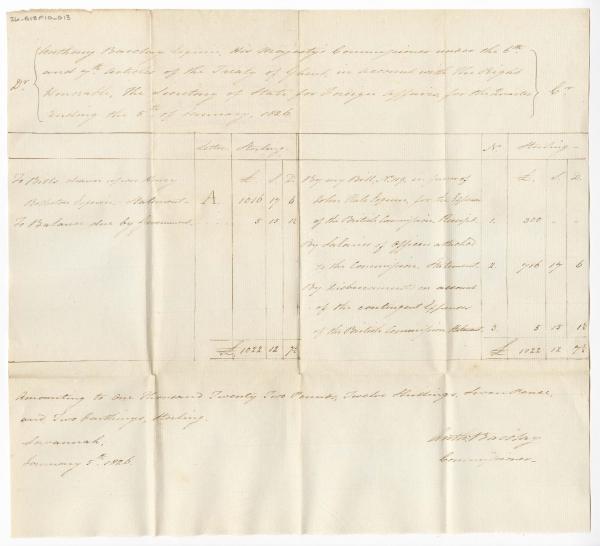 Anthony Barclay Esquire, His Majesty's Commissioner under the 6th
and 7th Articles of the Treaty of Ghent, in account with the Right
Honorable, the Secretary of State for Foreign Affairs, for the Quarter
Ending the 5th of January, 1826
Dr Cr
Letter Sterling No Sterling
£ S D £ S D
To Bills drawn upon Henry
Esquire, Statement A 1016 17 6
To Balance due by Government 5 15 1½
By my Bill, No 119, in favor of
John Hale Esquire, for the Expenses
of the British Commission, Receipt 1. 300 - -
By Salaries of Officers attached
to the Commission, Statement 2. 716 17 6
By disbursements on account
of the contingent Expenses
of the British Commission, Abstract 3. 5 15 1½
£ 1022 12 7½ £ 1022 12 7½
Amounting to One Thousand Twenty Two Pounds, Twelve Shillings, Seven Pence,
and Two Farthings, Sterling.
Savannah,
January 5th 1826
Anth Barclay
Commissioner